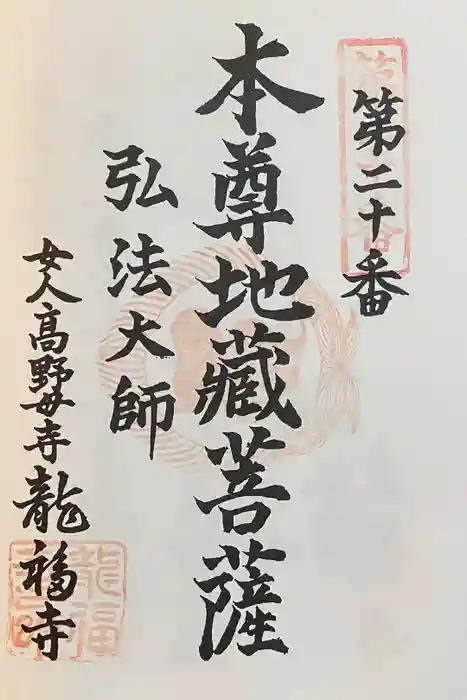 第二十番
本尊地藏菩薩
弘法大師
女人高野母寺龍福寺
龍福寺